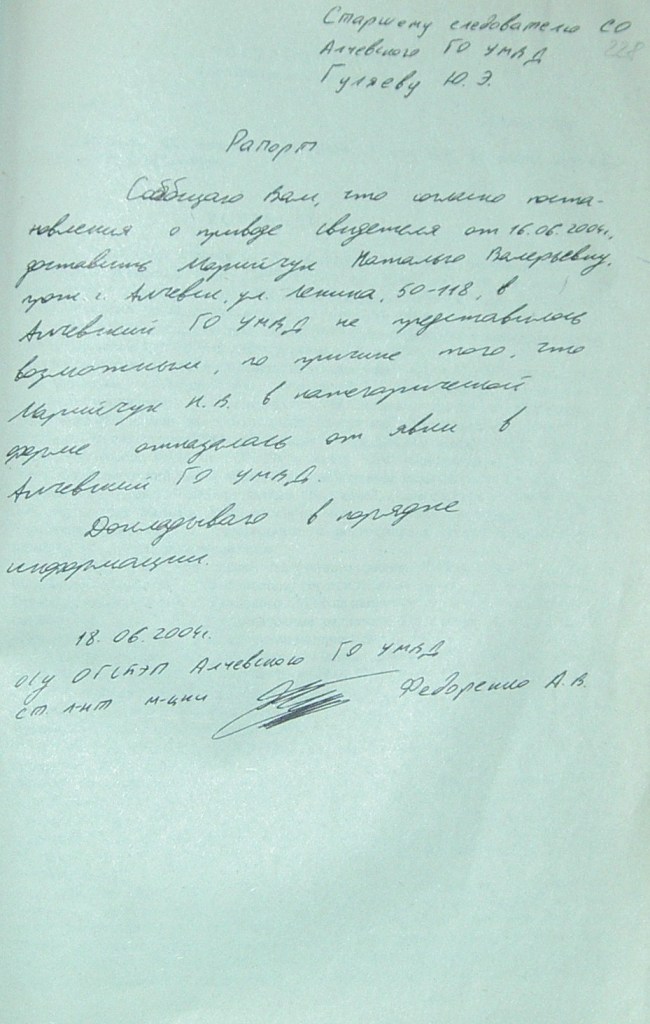 Старшему следователю СО
Алчевского ГО УМВД
228
Гуляеву Ю. Э.
Рапорт
Сообщаю Вам, что согласно поста-
новления о приводе свидетеля от 16.06.2004г.,
доставить Марийчук Наталью Валерьевну,
прож. г. Алчевск, ул. Ленина, 50-118, в
Алчевский ГО УМВД не представилось
возможным, по причине того, что
Марийчук Н. В. в категорической
форме отказалась от явки в
Алчевский ГО УМВД.
Докладываю в порядке
информации.
18. 06. 2004г.
о/у ОГСБЭП Алчевского ГО УМВД
ст. л-нт м-ции Федоренко А. В.